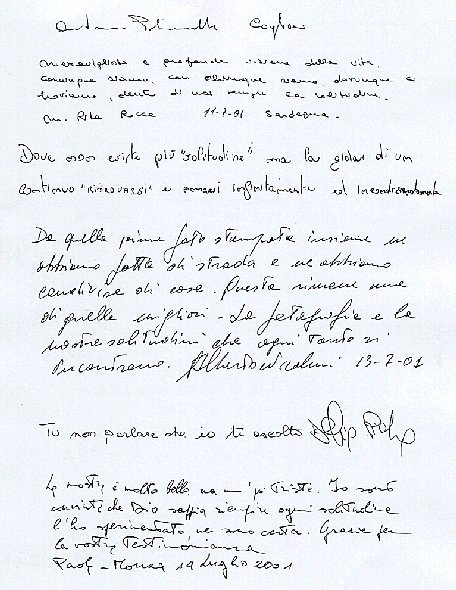 Cagliari
meravigliosa e profonda visione della vita.
Comunque siamo, con chiunque siamo dovunque ci
troviamo, dentro di noi sempre la solitudine.
M. Rita Rocca 11-7-01 Sardegna.
Dove non esiste più "solitudine" ma la gioia di un
continuo "RITROVARSI" e amarsi infinitamente ed incondizionatamente
Da quella prima foto stampata insieme ne
abbiamo fatta di strada e ne abbiamo
condivise di cose. Questa rimane una
di quelle migliori - La fotografia e le
nostre solitudini che ogni tanto si
incontrano. Alberto 13-7-01
Tu non parlare che io te ascolto
La mostra è molto bella ma un pò triste. Io sono
convinta che Dio sappia riempire ogni solitudine
l'ho sperimentato ne sono certa. Grazie per
la vostra Testimonianza
14 Luglio 2001